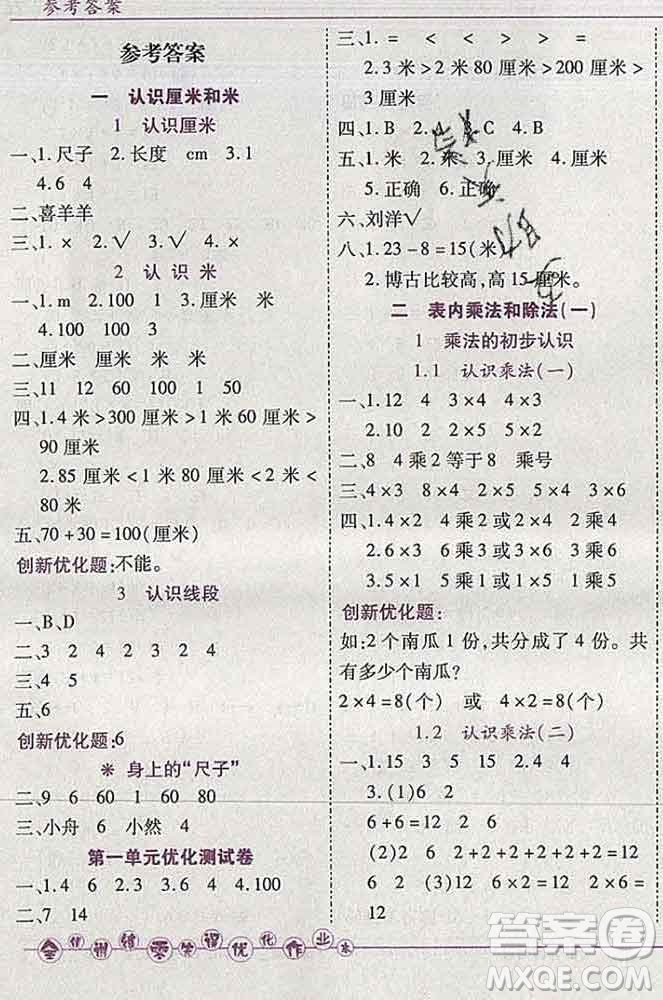 参考答案
参考答案
一 认识厘米和米
1 认识厘米
一、1.尺子 2.长度 cm 3.1
4.6 4
二、喜羊羊
三、1.× 2.√ 3.√
2 认识米
一、1.m 2.100 1 3.100
二、厘米 厘米 米 厘米
三、11 12 60 100
四、1.4米>300厘米>1米60厘米>
50厘米
2.85厘米<1米80厘米<2米<
80米
五、70+30=100(厘米)
创新优化题:不能。
3 认识线段
一、B、D
二、3 2 4 2 3 2 4
三、4 5
五、6
创新优化题:6
※ 身上的“尺子”
二、9 6 60 160 60 80
三、小舟 小然 4
第一单元优化测试卷
一、1.4 6 2.3 3.6 4 4.100
二、7 14
三、1.= < < > < >
2.3米>2米80厘米>200厘米>
3厘米
四、1.B 2.4 3.C 4.B
五、1.米 2.米 3.厘米 4.厘米
5.正确 6.正确
六、刘洋√
八、1.23-8=15(米)
2.博古比较高,高15厘米。
二 表内乘法和除法(一)
1 乘法的初步认识
1.1 认识乘法(一)
一、1.12 4 3×4 4×3
2.10 2 2×5 5×2
二、8 4乘2等于8 乘号
三、4×3 8×4 6×3 2×4
四、1.4×2 4乘2或2×4 2乘4
2.6×3 6乘3或3×6 3乘6
3.5×1 5乘1或1×5 1乘5
创新优化题:
如:2个南瓜1份,共分成了4份。共
有多少个南瓜?
2×4=8(个) 或 4×2=8(个)
1.2 认识乘法(二)
一、1.15 3 5 2.4 4 4
3.(1)6 2
6+6=12 6×2=12 2×6=12
(2)2 6 2+2+2+2+2+2=12
6×2=12 2×6=12 (3)12 12
12
优化作业
答案圈
MXQE.COM